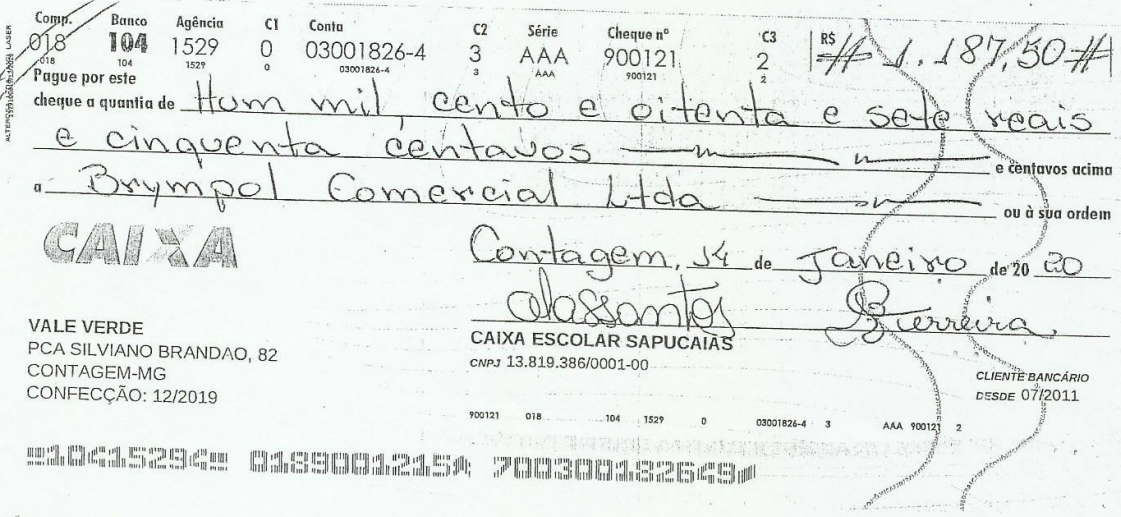 Comp. Banco Agência C1 Conta C2 Série Cheque nº C3 R$
018 104 1529 0 03001826-4 3 AAA 900121 2 # 1.187,50 #
018 104 1529 0 03001826-4 3 AAA 900121 2
Pague por este
cheque a quantia de Hum mil, cento e oitenta e sete reais
e cinquenta centavos e centavos acima
a Brympol Comercial Ltda ou à sua ordem
CAIXA
Contagem, 14 de Janeiro de 20 20
Ferreira
VALE VERDE
PCA SILVIANO BRANDAO, 82
CONTAGEM-MG
CONFECÇÃO: 12/2019
CAIXA ESCOLAR SAPUCAIAS
CNPJ 13.819.386/0001-00
CLIENTE BANCÁRIO
DESDE 07/2011
900121 018 104 1529 0 03001826-4 3 AAA 900121 2
10415294 0189001215 700300182649